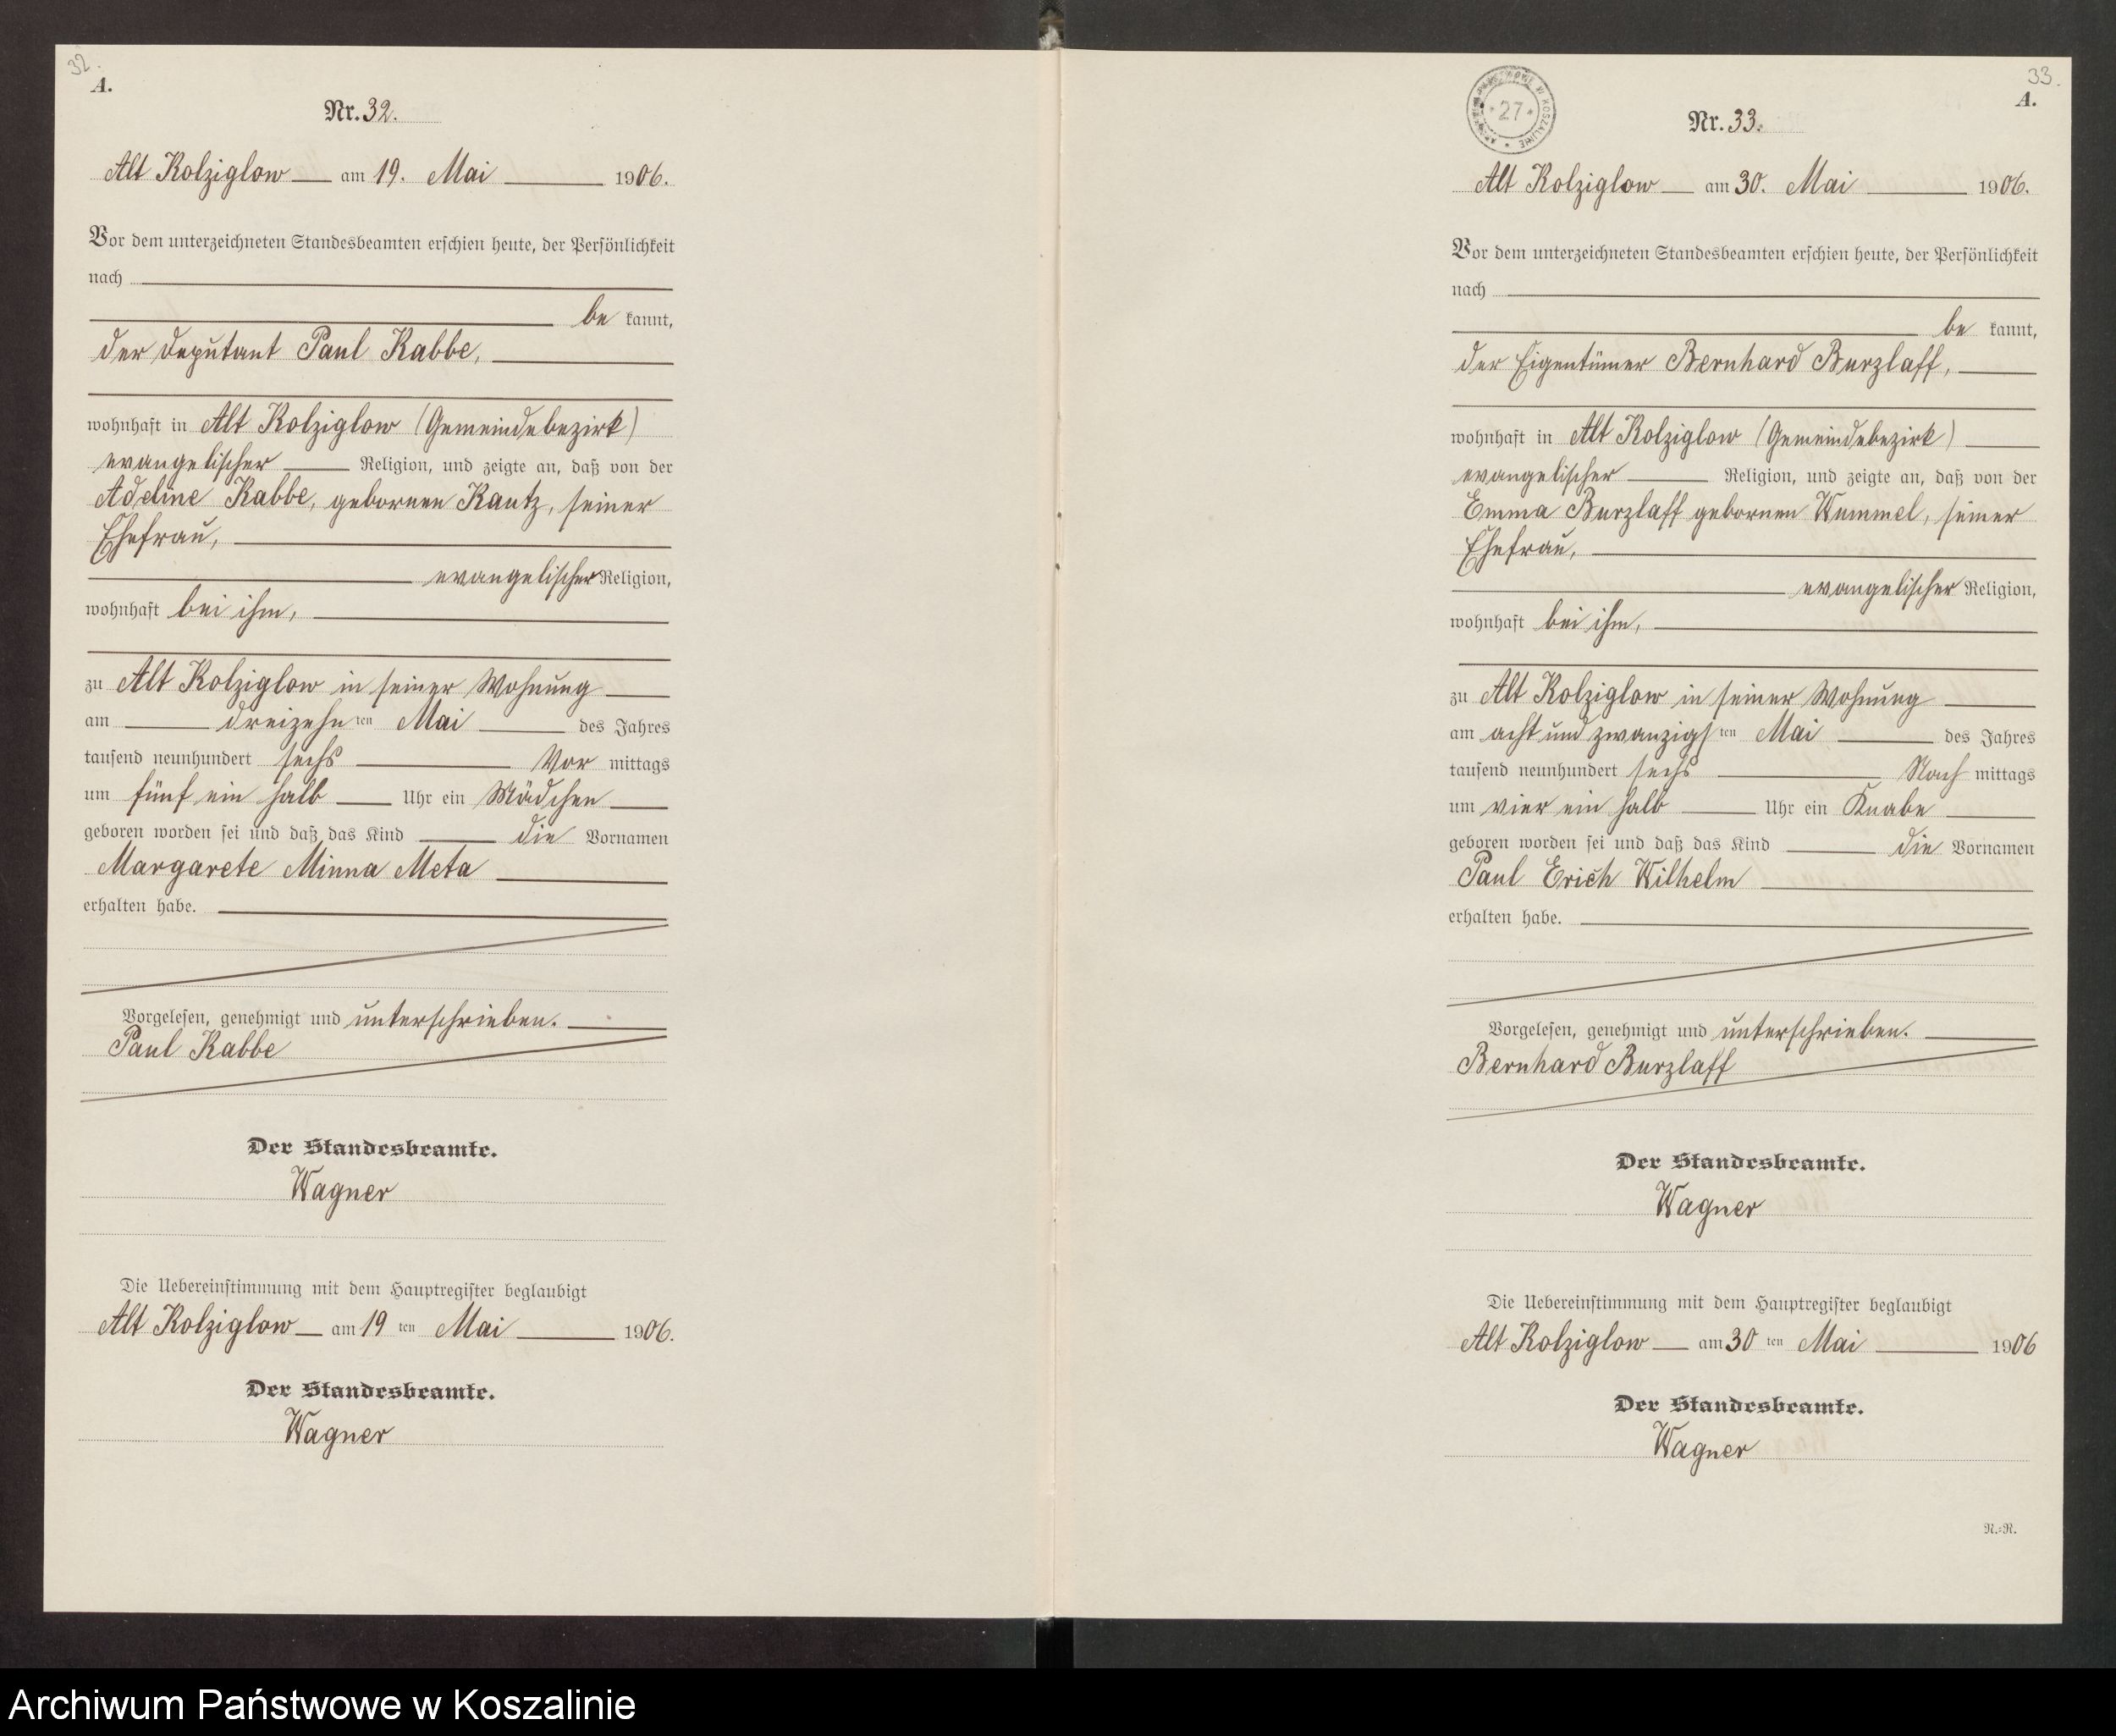 32.
A.
Nr. 32.
Alt Kolziglow am 19. Mai 1906.
Vor dem unterzeichneten Standesbeamten erschien heute, der Persönlichkeit
nach
be kannt,
der Deputant Paul Rabbe,
wohnhaft in Alt Kolziglow (Gemeindebezirk)
evangelischer Religion, und zeigte an, daß von der
Adeline Rabbe, gebornen Kautz, seiner
Ehefrau,
evangelischer Religion,
wohnhaft bei ihm,
zu Alt Kolziglow in seiner Wohnung
am dreizehn ten Mai des Jahres
tausend neunhundert sechs Vor mittags
um fünf ein halb Uhr ein Mädchen
geboren worden sei und daß das Kind die Vornamen
Margarete Minna Meta
erhalten habe.
Vorgelesen, genehmigt und unterschrieben.
Paul Rabbe
Der Standesbeamte.
Wagner
Die Uebereinstimmung mit dem Hauptregister beglaubigt
Alt Kolziglow am 19 ten Mai 1906.
Der Standesbeamte.
Wagner
33.
A.
27
W KOSZALINIE
Nr. 33.
Alt Kolziglow am 30. Mai 1906.
Vor dem unterzeichneten Standesbeamten erschien heute, der Persönlichkeit
nach
be kannt,
der Eigentümer Bernhard Burzlaff,
wohnhaft in Alt Kolziglow (Gemeindebezirk)
evangelischer Religion, und zeigte an, daß von der
Emma Burzlaff gebornen Wummel, seiner
Ehefrau,
evangelischer Religion,
wohnhaft bei ihm,
zu Alt Kolziglow in seiner Wohnung
am acht und zwanzigs ten Mai des Jahres
tausend neunhundert sechs Nach mittags
um vier ein halb Uhr ein Knabe
geboren worden sei und daß das Kind die Vornamen
Paul Erich Wilhelm
erhalten habe.
Vorgelesen, genehmigt und unterschrieben.
Bernhard Burzlaff
Der Standesbeamte.
Wagner
Die Uebereinstimmung mit dem Hauptregister beglaubigt
Alt Kolziglow am 30 ten Mai 1906
Der Standesbeamte.
Wagner
N.=R.
Archiwum Państwowe w Koszalinie